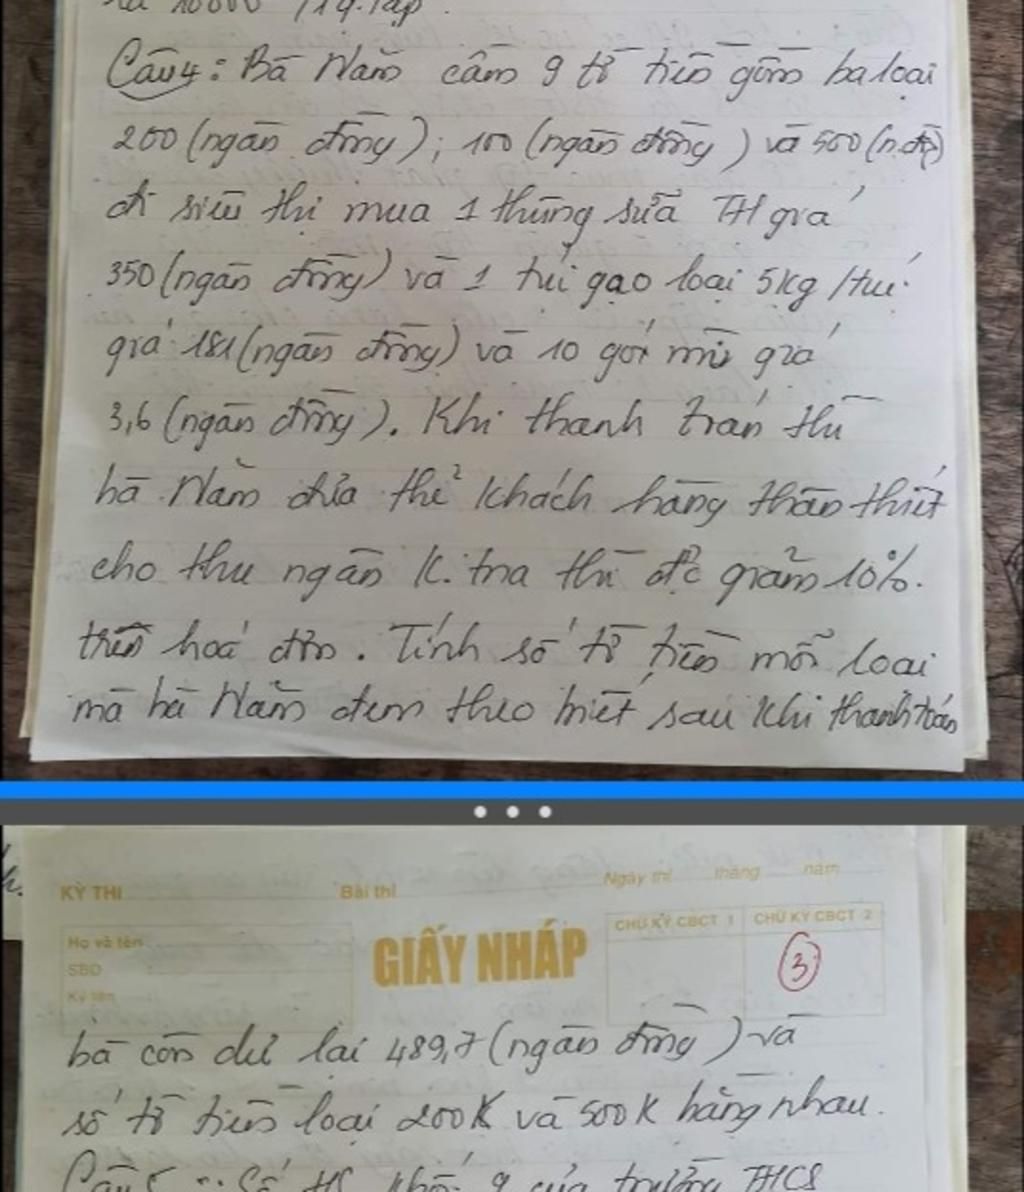 Câu 4: Bà Năm cầm 9 tờ tiền gồm ba loại
200 (ngàn đồng); 100 (ngàn đồng) và 500 (n.đồng)
đi siêu thị mua 1 thùng sữa TH giá
350 (ngàn đồng) và 1 túi gạo loại 5kg/túi
giá 181 (ngàn đồng) và 10 gói mì giá
3,6 (ngàn đồng). Khi thanh toán thì
bà Năm đưa thẻ khách hàng thân thiết
cho thu ngân k.tra thì đc giảm 10%
trên hoá đơn. Tính số tờ tiền mỗi loại
mà bà Năm đem theo biết sau khi thanh toán
KỲ THI Bài thi Ngày thi tháng năm
Họ và tên CHỮ KÝ CBCT 1 CHỮ KÝ CBCT 2
SBD GIẤY NHÁP 3
Ký tên
bà còn dư lại 489,7 (ngàn đồng) và
số tờ tiền loại 200K và 500K bằng nhau.
Câu 5: Số HS khối 9 của trường THCS